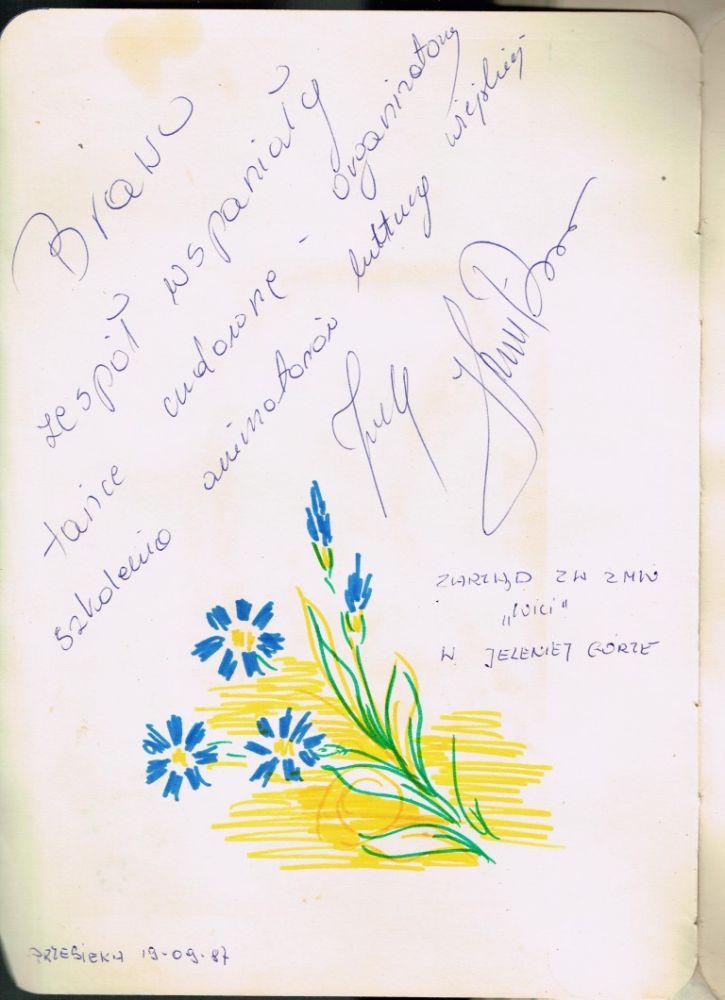 Brawo
zespół wspaniały
tańce cudowne - organizatorzy
szkolenia animatorów kultury wiejskiej
ZARZĄD ZW ZMW
„WICI"
W JELENIEJ GÓRZE
PRZESIEKA 19-09-87